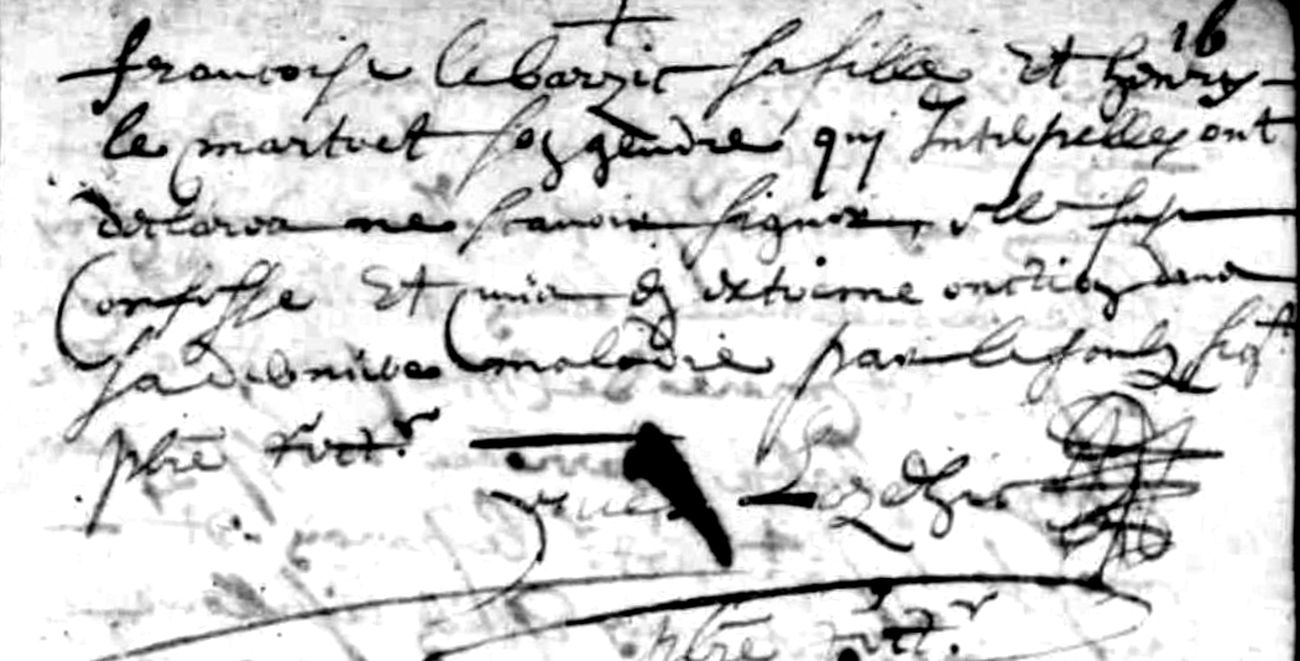 16
francoise le barzic sa fille Et henry
le martret son gendre qui Interpelles ont
declare ne scauoir signer, elle fust
Confesse et munie de extreme onction dans
sa derniere maladie par le soubz sigt
pbre
yues
pbre